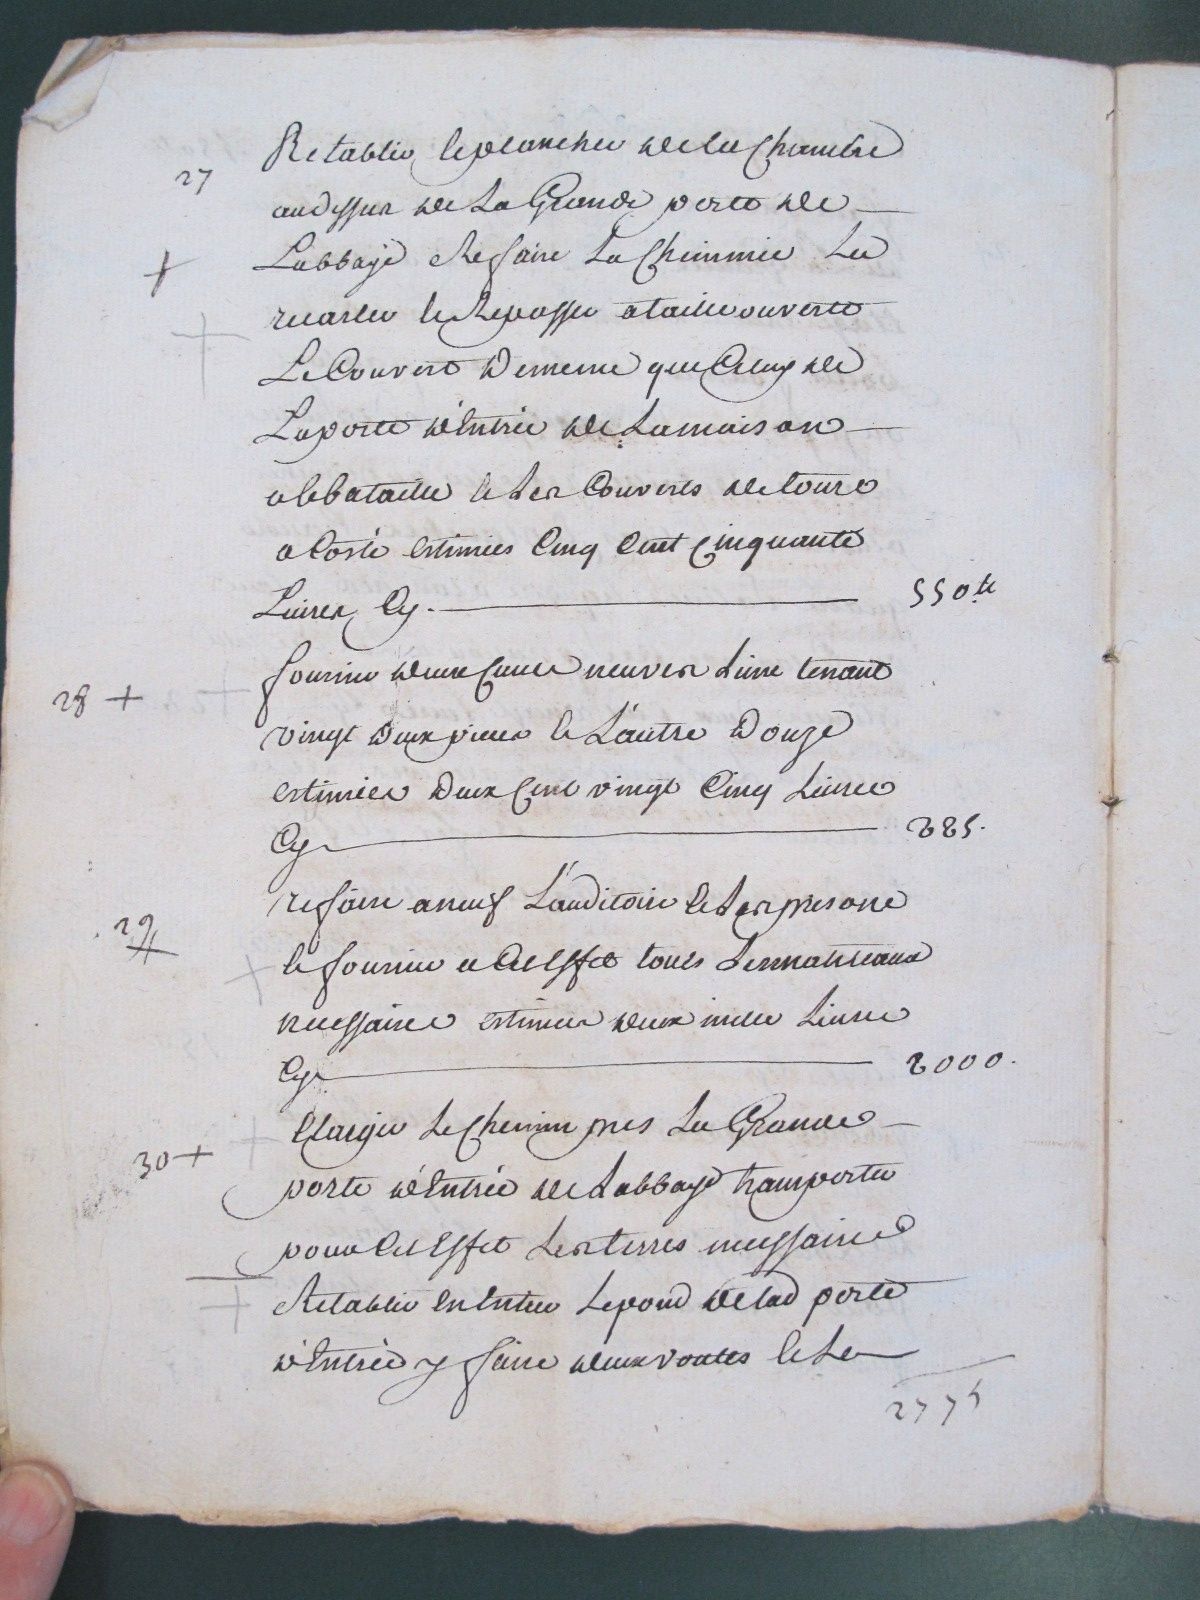 27
Retablir le plancher de la Chambre
audessus de La Grande porte de
Labbaye Refaire La Cheminée La
recarler et Repasser a taille ouverte
Le Couvert de meme que Celuy de
La porte d'Entrée de La maison
abbatialle et Les Couverts de tours
a Costé Estimées Cinq Cent Cinquante
Livres Cy. 550 lt
28
fournir deux Cuves neuves Lune tenant
vingt deux pieces et L'autre Douze
Estimées Deux Cent vingt Cinq Livres
Cy 225.
29
refaire a neuf L'auditoire et Les prisons
et fournir a Cet Effet touts Les materiaux
necessaires Estimées deux mille Livres
Cy 2000.
30
Elargir Le Chemin pres La Grande
porte d'Entrée de Labbaye transporter
pour Cet Effet Les terres necessaires
Retablir En Entier Le pond de lad porte
d'Entrée y faire deux voutes et Le
2775